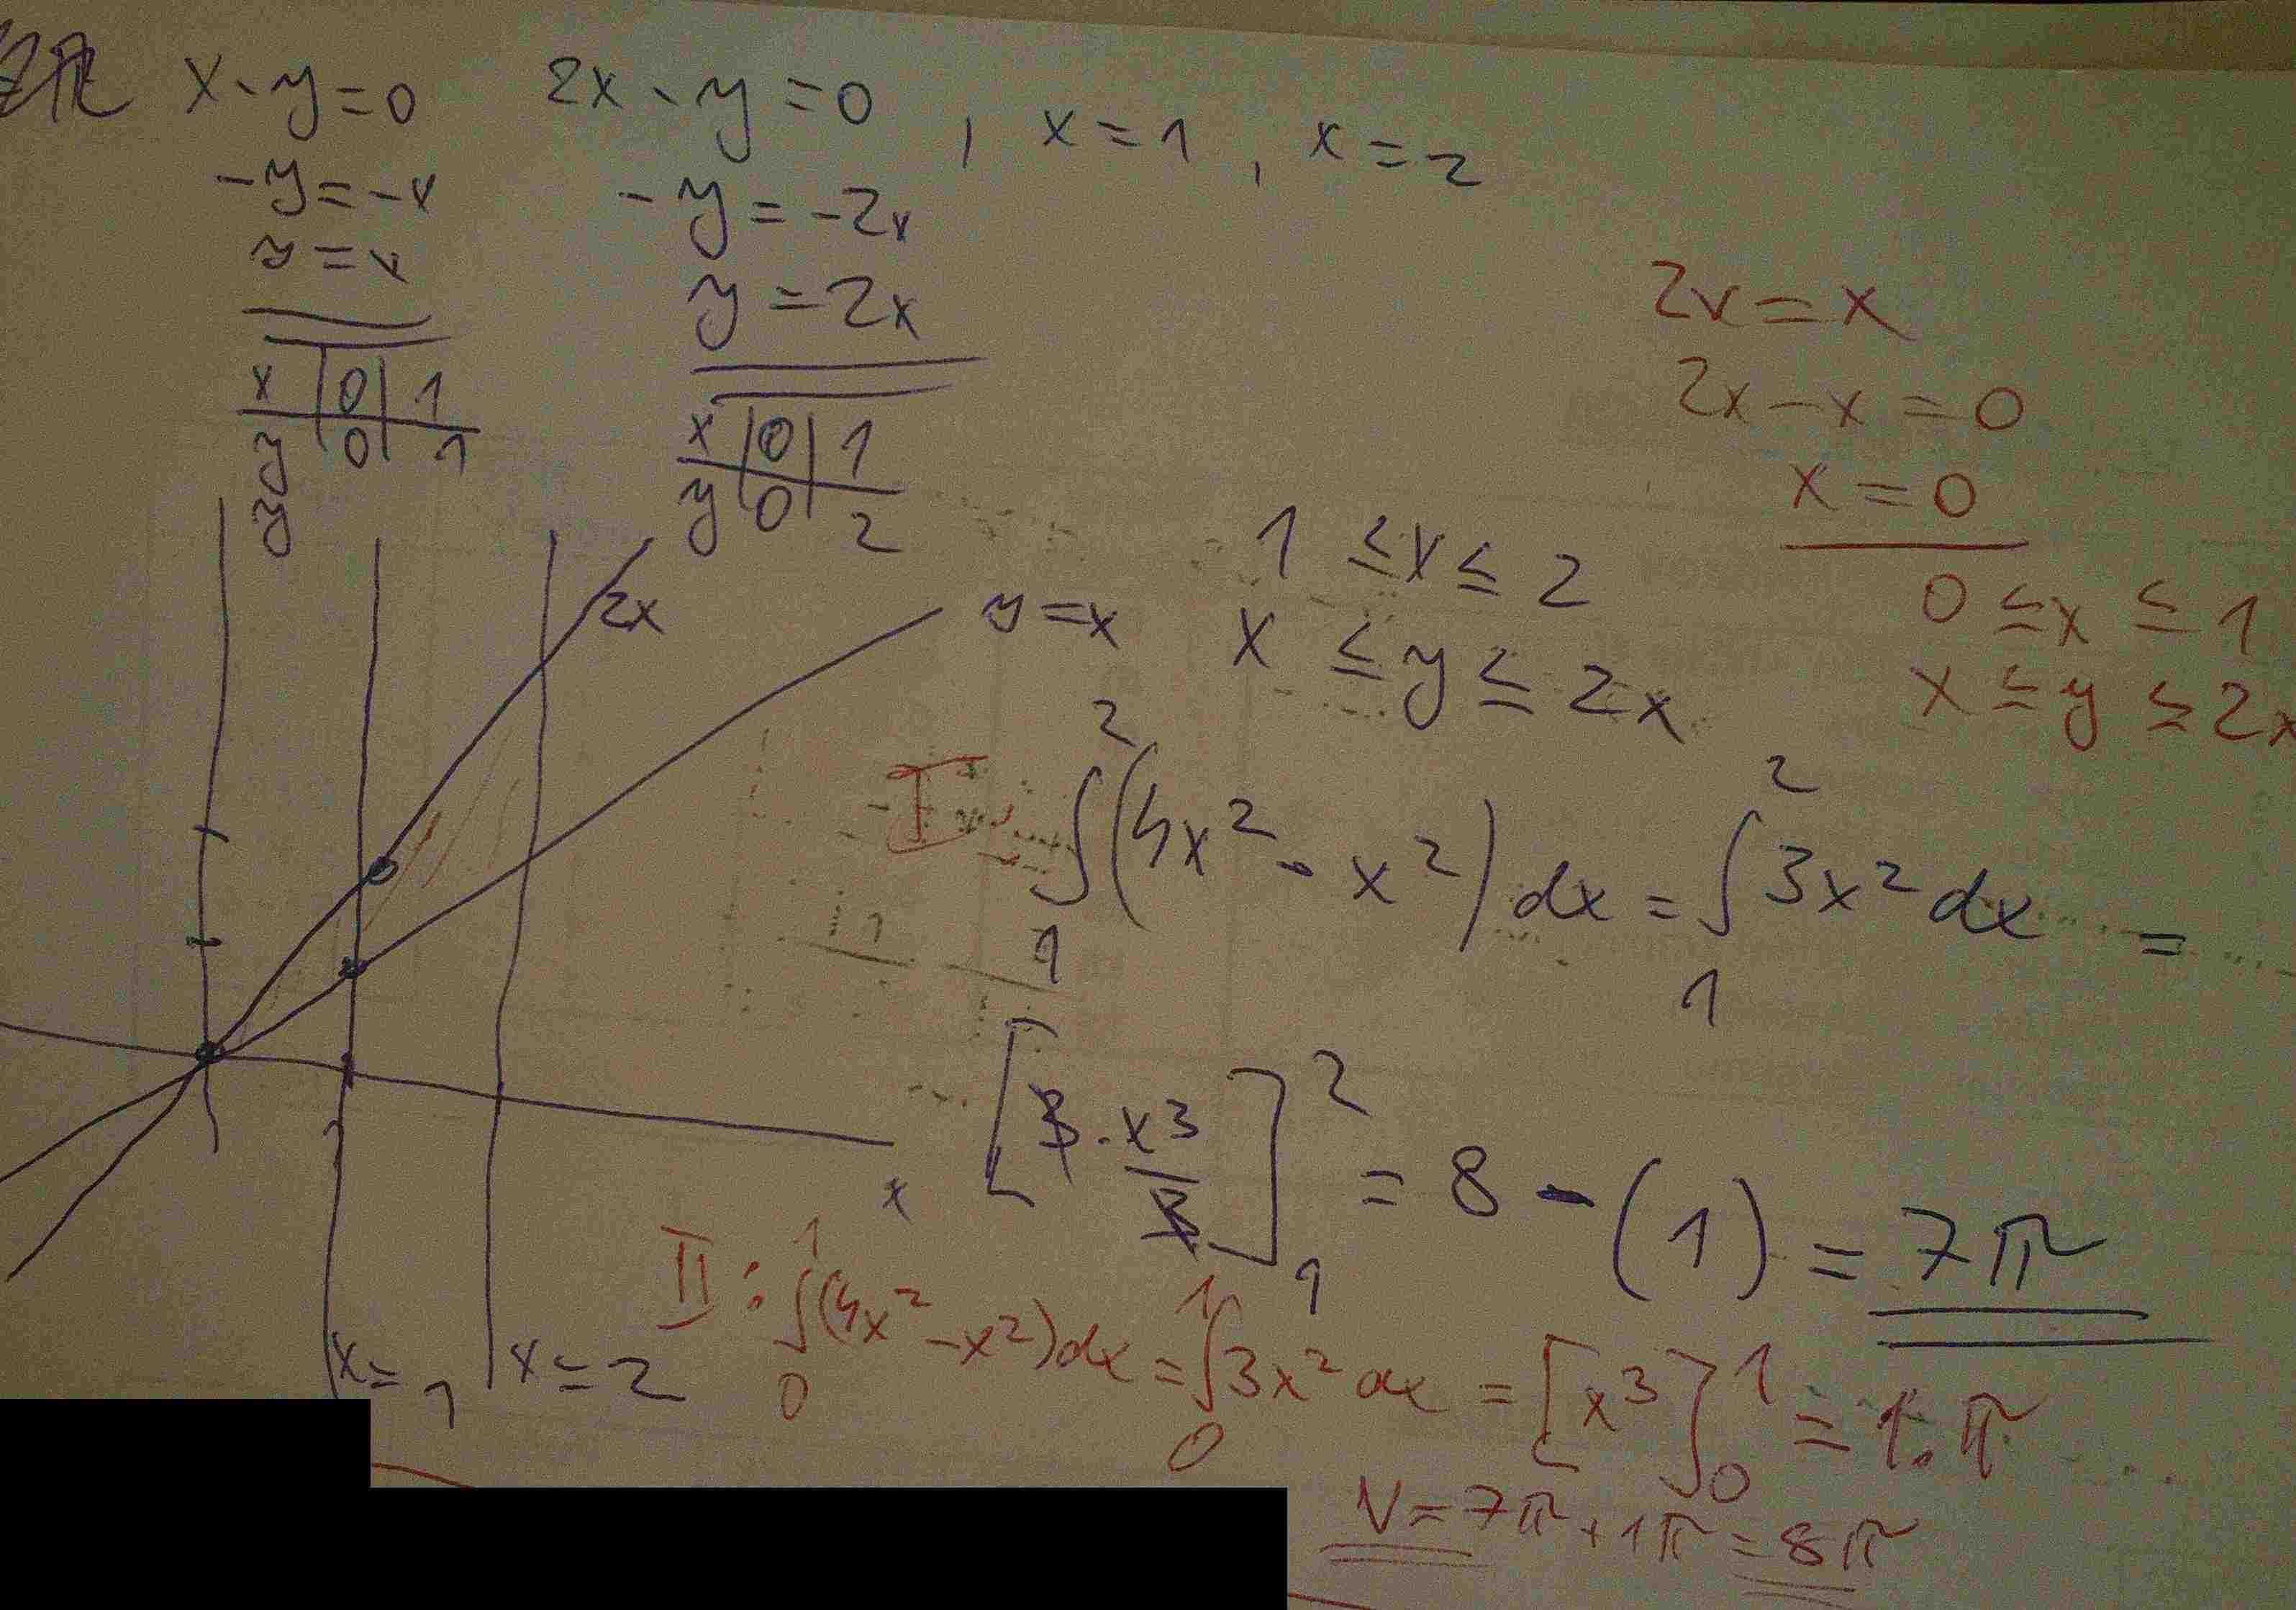 x - y = 0    2x - y = 0 , x = 1 , x = 2
-y = -x    -y = -2x
y = x    y = 2x
x | 0 | 1
y | 0 | 1
x | 0 | 1
y | 0 | 2
2x = x
2x - x = 0
x = 0
0 ≤ x ≤ 1
x ≤ y ≤ 2x
y
2x
y = x
1 ≤ x ≤ 2
x ≤ y ≤ 2x
I ∫₁² (4x² - x²) dx = ∫₁² 3x² dx =
[3 · x³/3]₁² = 8 - (1) = 7π
x
x = 1    x = 2
II : ∫₀¹ (4x² - x²) dx = ∫₀¹ 3x² dx = [x³]₀¹ = 1 . π
V = 7π + 1π = 8π